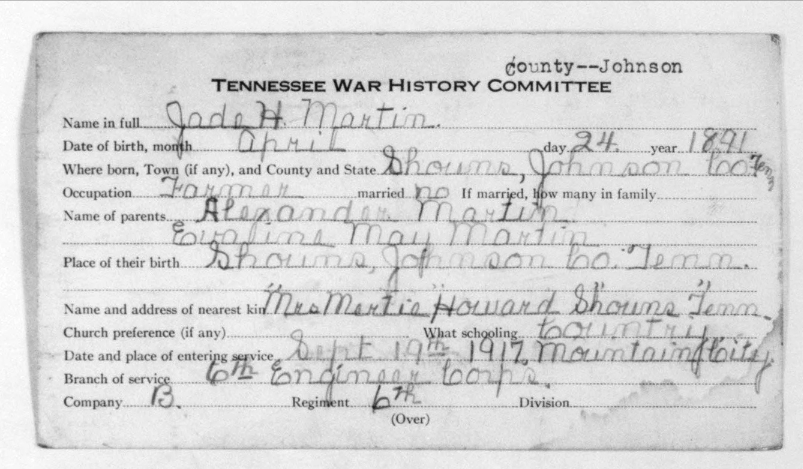 County--Johnson
TENNESSEE WAR HISTORY COMMITTEE
Name in full Jade H. Martin.
Date of birth, month April day 24 year 1891
Where born, Town (if any), and County and State Shouns, Johnson Co. Tenn
Occupation Farmer married no If married, how many in family
Name of parents Alexander Martin
Evaline May Martin
Place of their birth Shouns, Johnson Co. Tenn.
Name and address of nearest kin "Mrs Mertie" Howard Shouns "Tenn.
Church preference (if any) What schooling Country
Date and place of entering service Sept 19th 1917, Mountain City,
Branch of service 6th Engineer Corps.
Company B. Regiment 6th Division
(Over)